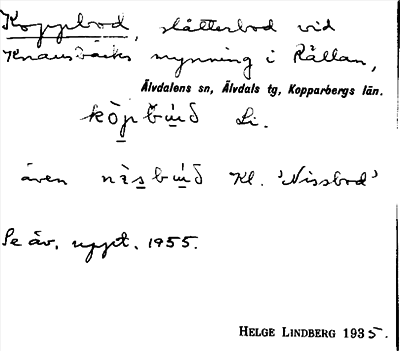 Koppbod, slåtterbod vid
Knausbäcks mynning i Rällan,
Älvdalens sn, Älvdals tg, Kopparbergs län.
köpbuð Li.
även nisbuð Kl. 'Nissbod'
Se äv. uppt. 1955.
HELGE LINDBERG 1935.